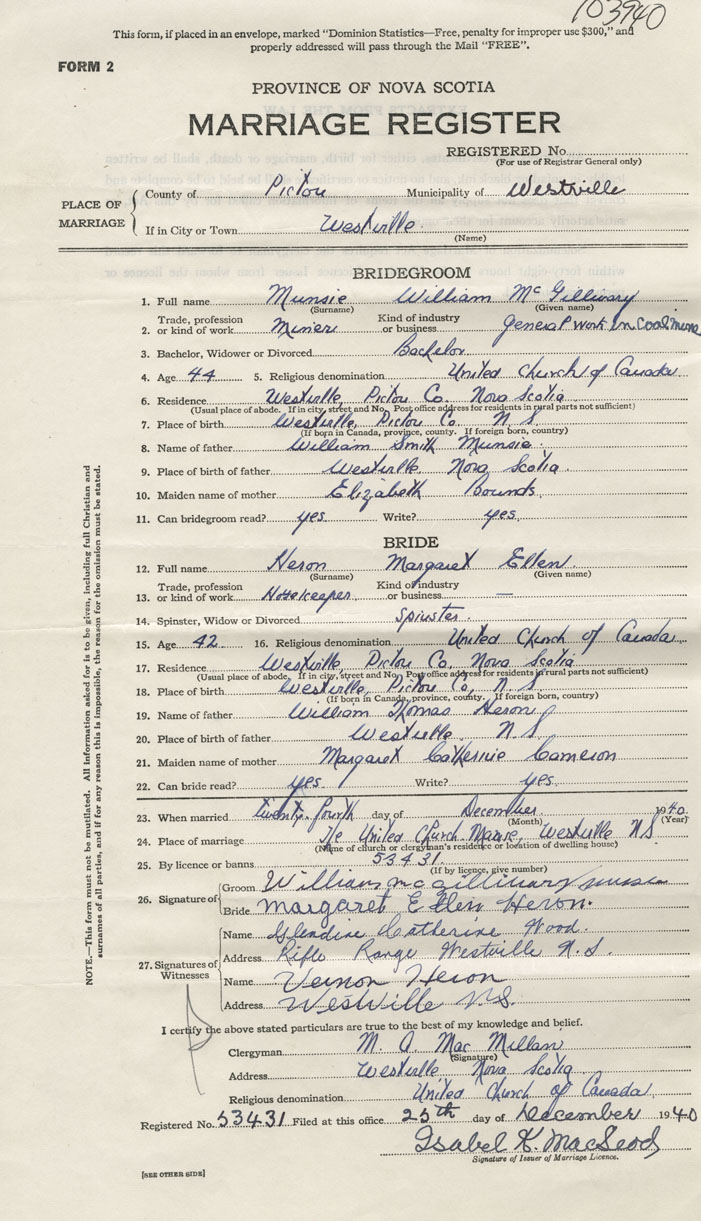 103940
This form, if placed in an envelope, marked "Dominion Statistics—Free, penalty for improper use $300," and
properly addressed will pass through the Mail "FREE".
FORM 2
PROVINCE OF NOVA SCOTIA
MARRIAGE REGISTER
REGISTERED No.
(For use of Registrar General only)
PLACE OF MARRIAGE
County of Pictou Municipality of Westville
If in City or Town Westville
(Name)
BRIDEGROOM
1. Full name Munsie William McGillivary
(Surname) (Given name)
2. Trade, profession or kind of work Miner Kind of industry or business general work in coal mine
3. Bachelor, Widower or Divorced Bachelor
4. Age 44 5. Religious denomination United Church of Canada
6. Residence Westville, Pictou Co. Nova Scotia
(Usual place of abode. If in city, street and No. Post office address for residents in rural parts not sufficient)
7. Place of birth Westville, Pictou Co. N.S.
(If born in Canada, province, county. If foreign born, country)
8. Name of father William Smith Munsie
9. Place of birth of father Westville, Nova Scotia
10. Maiden name of mother Elizabeth Bounds
11. Can bridegroom read? yes Write? yes
BRIDE
12. Full name Heron Margaret Ellen
(Surname) (Given name)
13. Trade, profession or kind of work Housekeeper Kind of industry or business —
14. Spinster, Widow or Divorced Spinster
15. Age 42 16. Religious denomination United Church of Canada
17. Residence Westville, Pictou Co. Nova Scotia
(Usual place of abode. If in city, street and No. Post office address for residents in rural parts not sufficient)
18. Place of birth Westville, Pictou Co, N.S.
(If born in Canada, province, county. If foreign born, country)
19. Name of father William Thomas Heron
20. Place of birth of father Westville N.S.
21. Maiden name of mother Margaret Catherine Cameron
22. Can bride read? yes Write? yes
23. When married twenty-fourth day of December 1940
(Month) (Year)
24. Place of marriage The United Church Manse, Westville N.S.
(Name of church or clergyman's residence or location of dwelling house)
25. By licence or banns 53431
(If by licence, give number)
26. Signature of
Groom William McGillivary Munsie
Bride Margaret Ellen Heron.
27. Signatures of Witnesses
Name Glendine Catherine Wood.
Address Rifle Range Westville N.S.
Name Vernon Heron
Address Westville N.S.
I certify the above stated particulars are true to the best of my knowledge and belief.
Clergyman M. A. MacMillan
(Signature)
Address Westville Nova Scotia
Religious denomination United Church of Canada
Registered No. 53431 Filed at this office 25th day of December 1940
Isabel K. MacLeod,
Signature of Issuer of Marriage Licence.
[SEE OTHER SIDE]
NOTE.—This form must not be mutilated. All information asked for is to be given, including full Christian and
surnames of all parties, and if for any reason this is impossible, the reason for the omission must be stated.